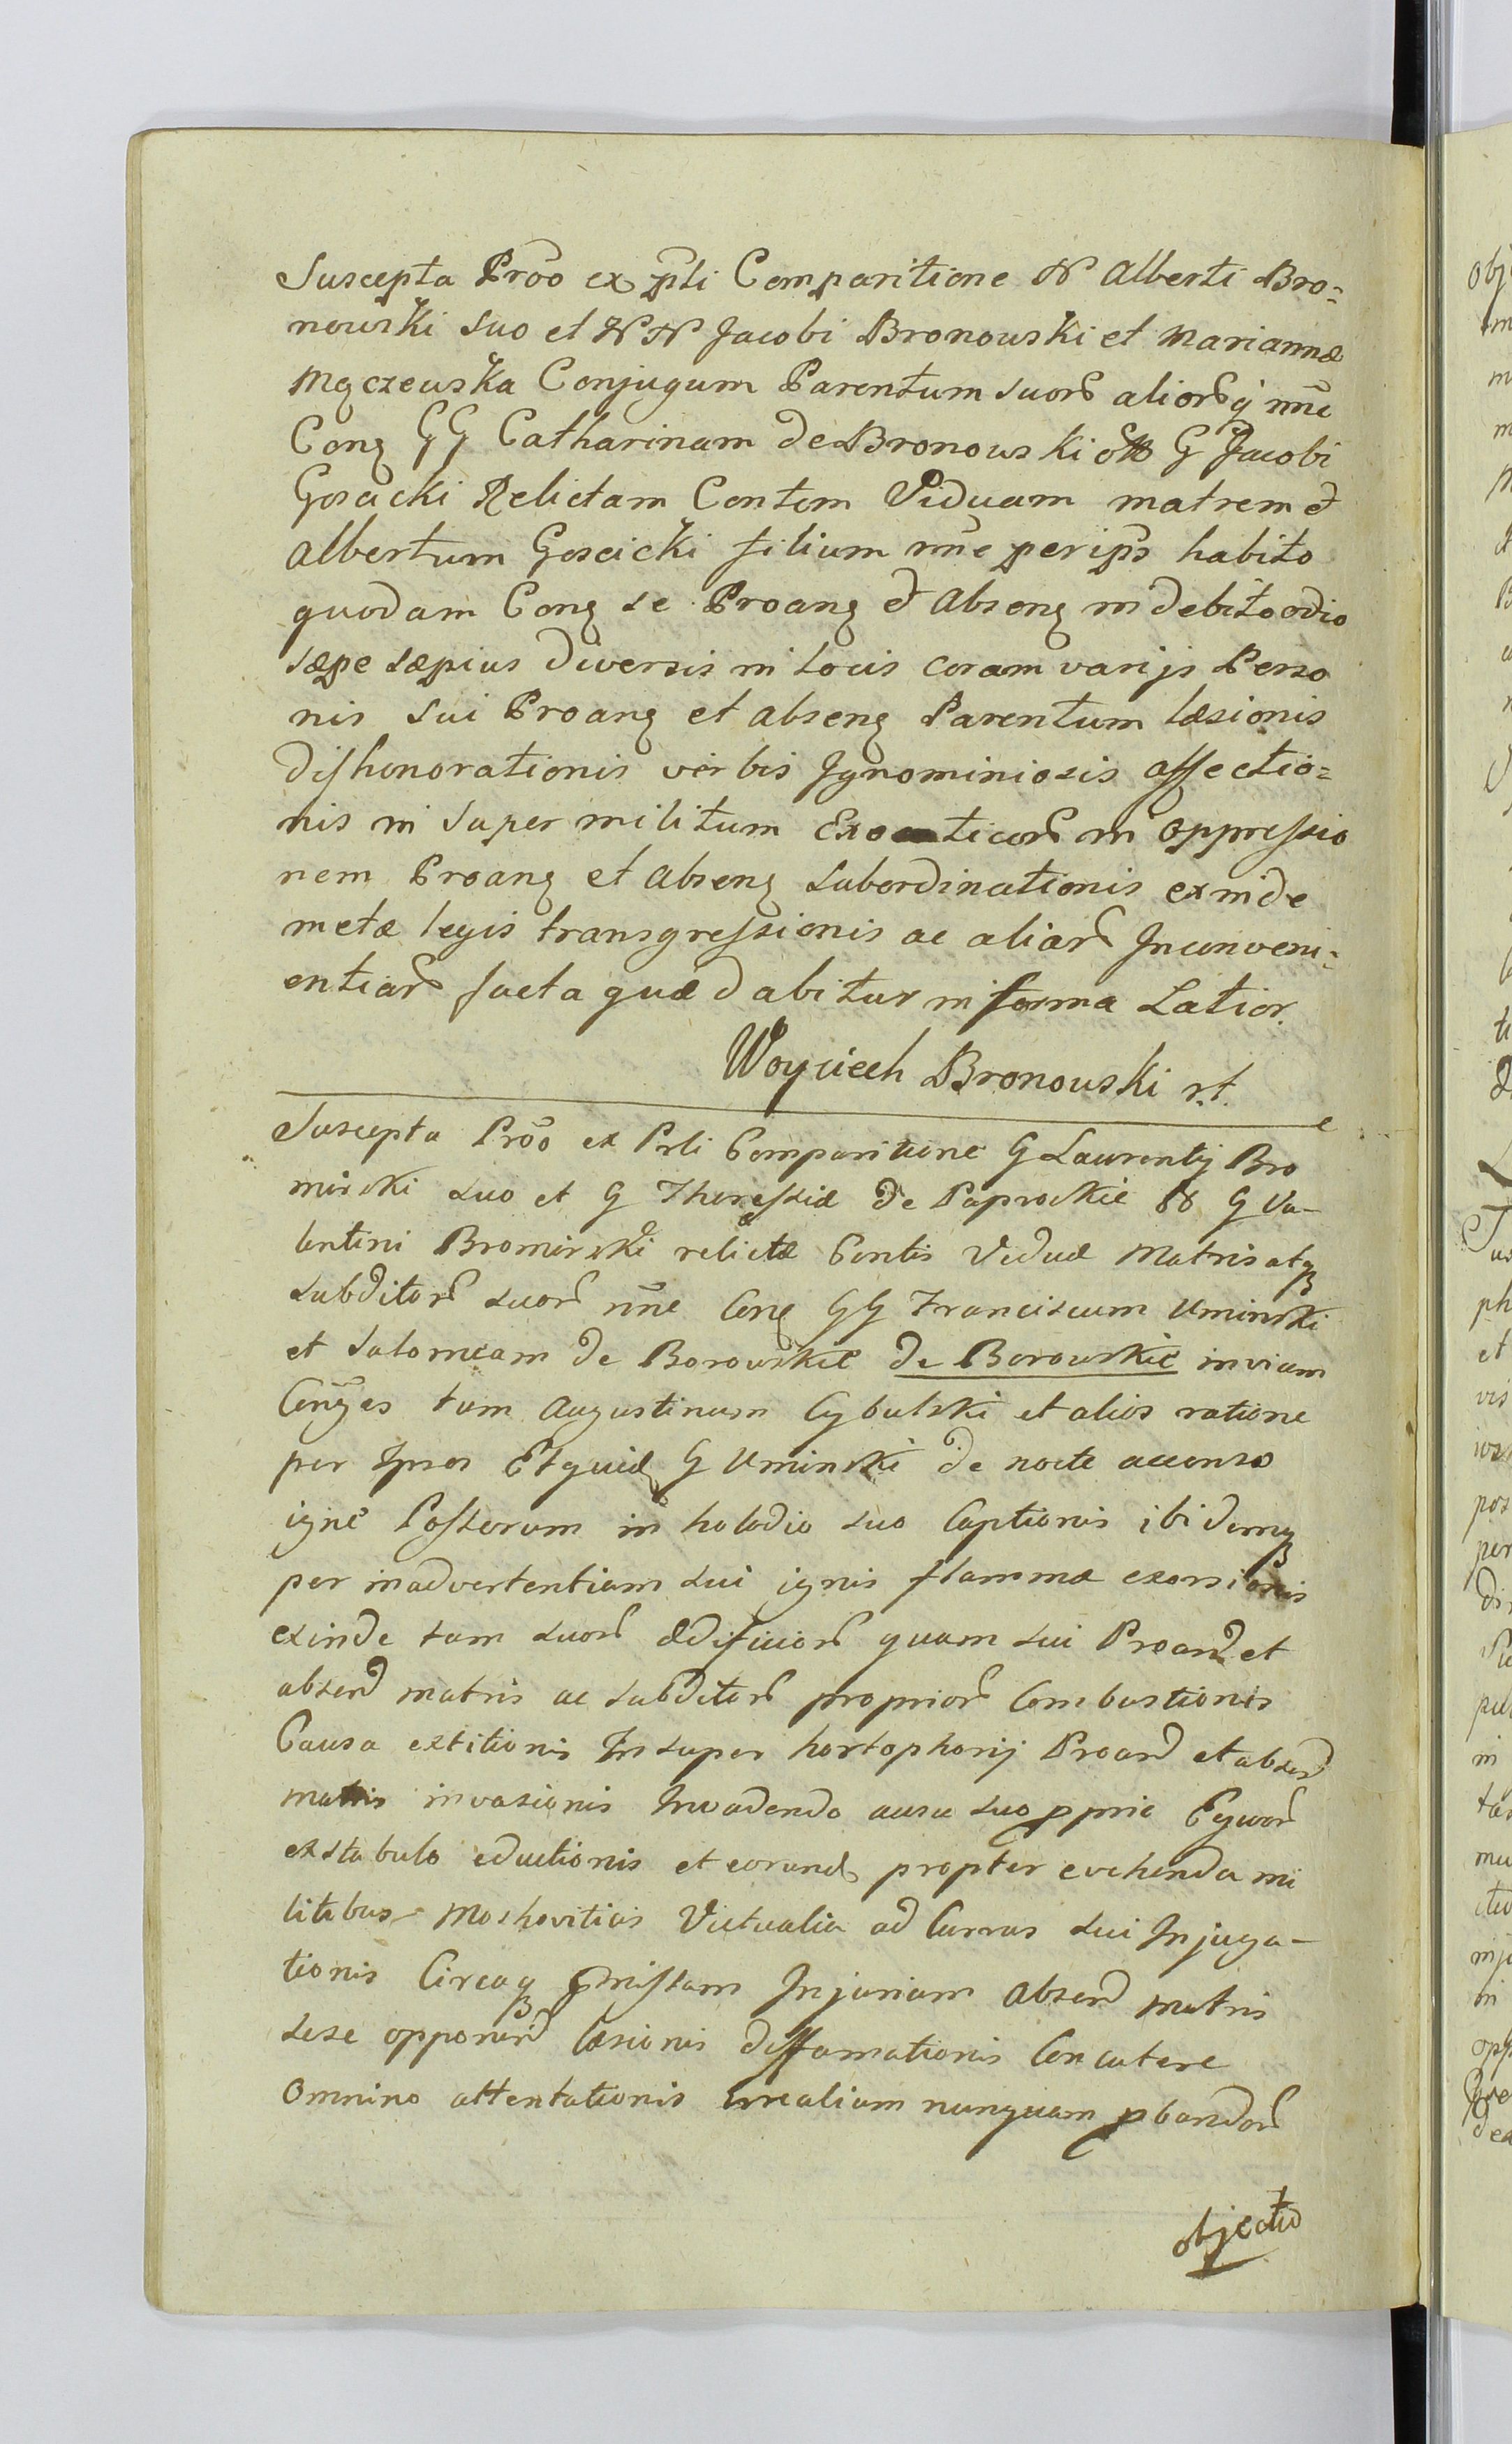 Suscepta Prõo ex prli Comparitione N Alberti Bro=
nowski suo et NN Jacobi Bronowski et Mariannæ
Mączewska Conjugum Parentum suorũ aliorũq nñe
Conq GG Catharinam de Bronowski olim G Jacobi
Goscicki Relictam Contem Viduam matrem et
Albertum Goscicki filium nñe per ips habito
quodam Conq se Proanq et absenq indebito odio
sæpe sæpius diversis in locis coram varijs Perso
nis sui Proanq et absenq Parentum læsionis
dishonorationis verbis Ignominiosis affectio=
nis in super militum in oppressio
nem Proanq et absenq subordinationis exinde
metæ legis transgressionis ac aliarũ Inconveni=
entiarũ facta quæ dabitur in forma Latior.
Woyciech Bronowski r.t.
Suscepta Prõo ex Prli Comparitione G Laurentij Bro
mirski suo et G Theressiæ de Paprockie G Va-
lentini Bromirski relictæ Contis Viduæ Matris atq
subditorũ suorũ nñe Conq GG Franciscum Uminski
et Salomeam de Borowskie de Borowskie inviam
Conjges tum Augustinum Cybulski et alios ratione
per Ipsos Etquid G Uminski de nocte accenso
igne Posterum in holodio suo Captionis ibidemq
per inadvertentiam sui ignis flammæ exorsionis
exinde tam suorũ ædificiorũ quam sui Proand et
absend matris ac subditorũ propriorũ Combustionis
Causa extitionis Insuper hortophorij Proand et absend
matris invasionis Invadendo ausu suo pprio Equorũ
ex stabulo eductionis et eorund propter evehenda mi
litibus Moshovitias Victualia ad Currus sui Injuga-
tionis Circaq Injuriam absend matris
sese opponend læsionis diffamationis Concutere
omnino attentationis nunquam pbandorũ
objectio